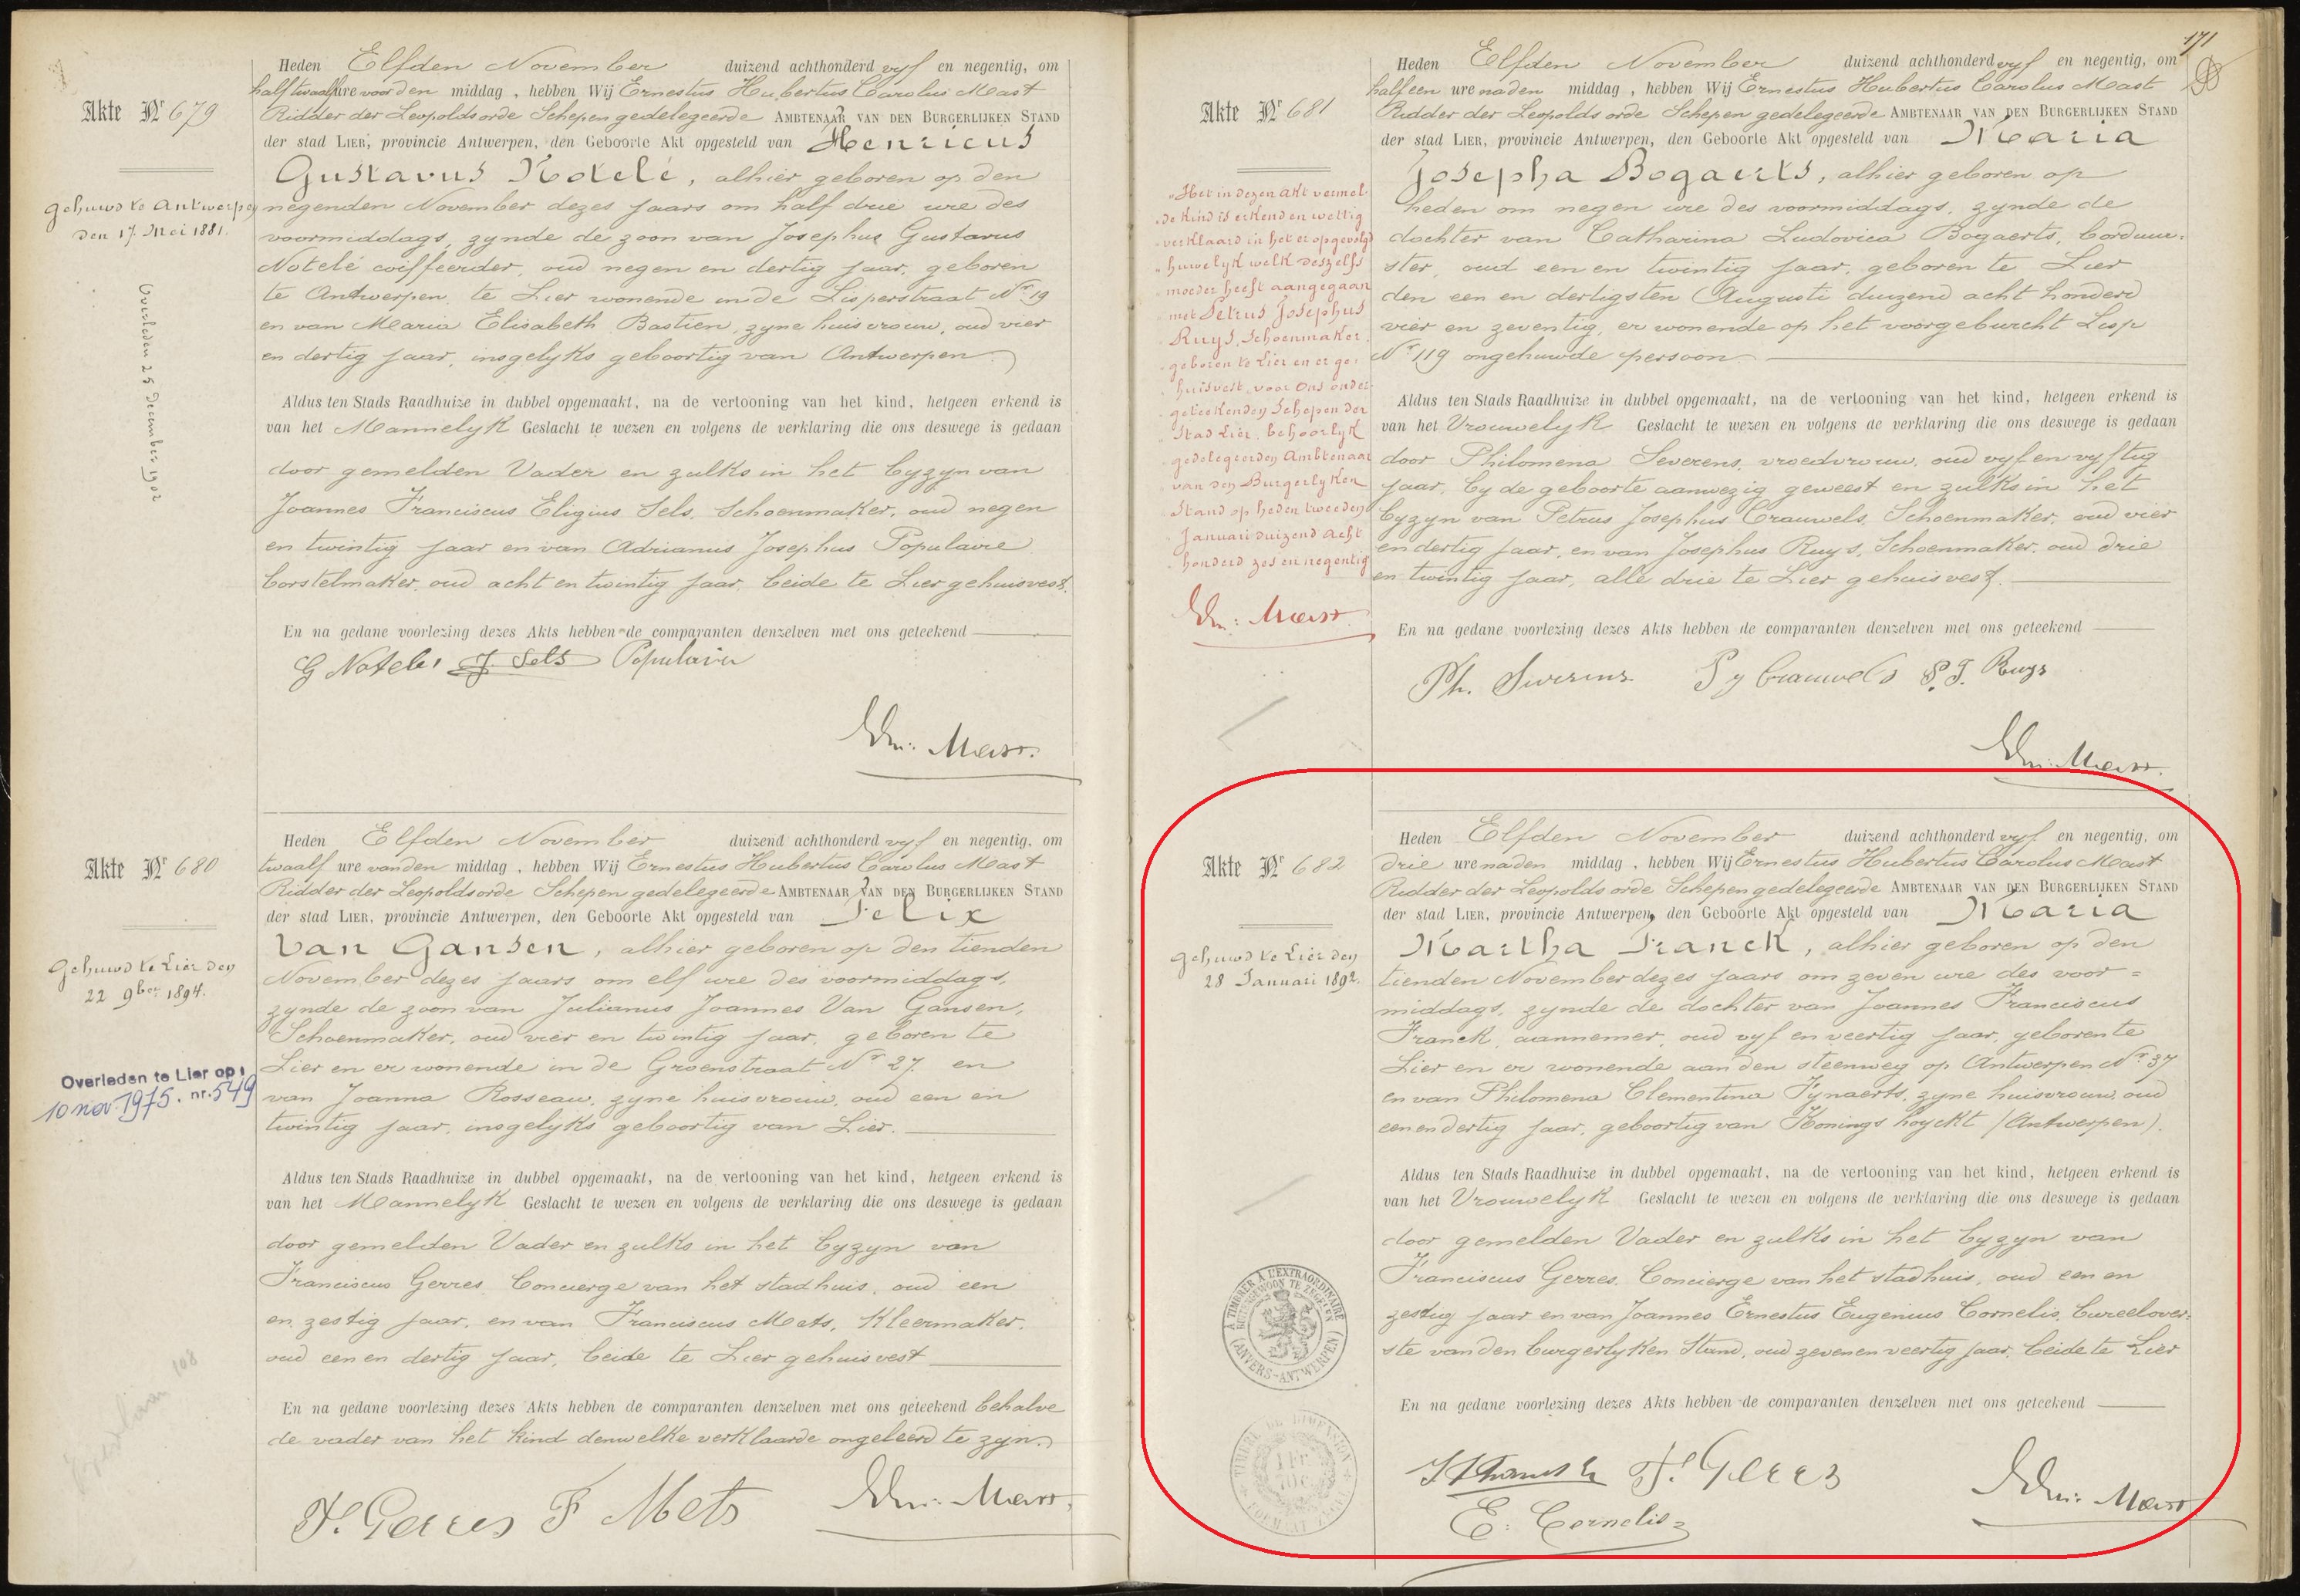 Heden Elfden November duizend achthonderd vyf en negentig, om
half twaalf ure voor den middag, hebben Wij Ernestus Hubertus Carolus Mast
Ridder der Leopoldsorde Schepen gedelegeerde AMBTENAAR VAN DEN BURGERLIJKEN STAND
der stad LIER, provincie Antwerpen, den Geboorte Akt opgesteld van Henricus
Gustavus Notelé, alhier geboren op den
negenden November dezes jaars om half drie ure des
voormiddags, zynde de zoon van Josephus Gustavus
Notelé coiffeerder, oud negen en dertig jaar, geboren
te Antwerpen, te Lier wonende in de Lisperstraat Nr 19
en van Maria Elisabeth Bastien, zyne huisvrouw, oud vier
en dertig jaar, insgelyks geboortig van Antwerpen
Akte Nr 679
Gehuwd te Antwerpen
den 17 Mei 1881.
Overleden 25 december 1902
Aldus ten Stads Raadhuize in dubbel opgemaakt, na de vertooning van het kind, hetgeen erkend is
van het Mannelyk Geslacht te wezen en volgens de verklaring die ons deswege is gedaan
door gemelden Vader en zulks in het byzyn van
Joannes Franciscus Eligius Sels, Schoenmaker, oud negen
en twintig jaar en van Adrianus Josephus Populaire
borstelmaker, oud acht en twintig jaar, beide te Lier gehuisvest.
En na gedane voorlezing dezes Akts hebben de comparanten denzelven met ons geteekend
G Notelé J. Sels Populaire
Ern: Mast.
Heden Elfden November duizend achthonderd vyf en negentig, om
twaalf ure van den middag, hebben Wij Ernestus Hubertus Carolus Mast
Ridder der Leopoldsorde Schepen gedelegeerde AMBTENAAR VAN DEN BURGERLIJKEN STAND
der stad LIER, provincie Antwerpen, den Geboorte Akt opgesteld van Felix
Van Gansen, alhier geboren op den tienden
November dezes jaars om elf ure des voormiddags,
zynde de zoon van Julianus Joannes Van Gansen,
Schoenmaker, oud vier en twintig jaar, geboren te
Lier en er wonende in de Groenstraat Nr 27 en
van Joanna Rosseau, zyne huisvrouw, oud een en
twintig jaar, insgelyks geboortig van Lier.
Akte Nr 680
Gehuwd te Lier den
22 9ber 1894.
Overleden te Lier op:
10 nov. 1975. nr. 549
Aldus ten Stads Raadhuize in dubbel opgemaakt, na de vertooning van het kind, hetgeen erkend is
van het Mannelyk Geslacht te wezen en volgens de verklaring die ons deswege is gedaan
door gemelden Vader en zulks in het byzyn van
Franciscus Gerres, Concierge van het stadhuis, oud een
en zestig jaar, en van Franciscus Mets, Kleermaker,
oud een en dertig jaar, beide te Lier gehuisvest
En na gedane voorlezing dezes Akts hebben de comparanten denzelven met ons geteekend behalve
de vader van het kind denwelke verklaarde ongeleerd te zyn.
F. Gerres F Mets Ern: Mast.
171
Heden Elfden November duizend achthonderd vyf en negentig, om
half een ure na den middag, hebben Wij Ernestus Hubertus Carolus Mast
Ridder der Leopoldsorde Schepen gedelegeerde AMBTENAAR VAN DEN BURGERLIJKEN STAND
der stad LIER, provincie Antwerpen, den Geboorte Akt opgesteld van Maria
Josepha Bogaerts, alhier geboren op
heden om negen ure des voormiddags, zynde de
dochter van Catharina Ludovica Bogaerts, borduur-
ster, oud een en twintig jaar, geboren te Lier
den een en dertigsten Augusti duizend acht honderd
vier en zeventig, er wonende op het voorgeburcht Lisp
Nr 119 ongehuwde persoon
Akte Nr 681
Het in dezen akt vermel-
de kind is erkend en wettig
verklaard in het er opgevolgd
huwelyk welk deszelfs
moeder heeft aangegaan
met Petrus Josephus
Ruys, Schoenmaker,
geboren te Lier en er ge-
huisvest, voor Ons onder-
geteekenden Schepen der
Stad Lier, behoorlyk
gedelegeerden Ambtenaar
van den Burgerlyken
Stand op heden tweeden
Januari duizend acht
honderd zes en negentig
Ern: Mast.
Aldus ten Stads Raadhuize in dubbel opgemaakt, na de vertooning van het kind, hetgeen erkend is
van het Vrouwelyk Geslacht te wezen en volgens de verklaring die ons deswege is gedaan
door Philomena Severens, vroedvrouw, oud vyf en vyftig
jaar, by de geboorte aanwezig geweest en zulks in het
byzyn van Petrus Josephus Crauwels, Schoenmaker, oud vier
en dertig jaar, en van Josephus Ruys, Schoenmaker, oud drie
en twintig jaar, alle drie te Lier gehuisvest.
En na gedane voorlezing dezes Akts hebben de comparanten denzelven met ons geteekend
Ph. Severens P J Crauwels P. J. Ruys
Ern: Mast.
Heden Elfden November duizend achthonderd vyf en negentig, om
drie ure na den middag, hebben Wij Ernestus Hubertus Carolus Mast
Ridder der Leopoldsorde Schepen gedelegeerde AMBTENAAR VAN DEN BURGERLIJKEN STAND
der stad LIER, provincie Antwerpen, den Geboorte Akt opgesteld van Maria
Martha Franck, alhier geboren op den
tienden November dezes jaars om zeven ure des voor=
middags, zynde de dochter van Joannes Franciscus
Franck, aannemer, oud vyf en veertig jaar, geboren te
Lier en er wonende aan den steenweg op Antwerpen Nr 37
en van Philomena Clementina Fynaerts, zyne huisvrouw, oud
een en dertig jaar, geboortig van Konings hoyckt (Antwerpen).
Akte Nr 682
Gehuwd te Lier den
28 Januari 1892.
Aldus ten Stads Raadhuize in dubbel opgemaakt, na de vertooning van het kind, hetgeen erkend is
van het Vrouwelyk Geslacht te wezen en volgens de verklaring die ons deswege is gedaan
door gemelden Vader en zulks in het byzyn van
Franciscus Gerres, Concierge van het stadhuis, oud een en
zestig jaar en van Joannes Ernestus Eugenius Cornelis, bureelover-
ste van den burgerlyken Stand, oud zeven en veertig jaar, beide te Lier
A TIMBRER A L'EXTRAORDINAIRE
BUITENGEWOON TE ZEGELEN
(ANVERS-ANTWERPEN)
TIMBRE DE DIMENSION
En na gedane voorlezing dezes Akts hebben de comparanten denzelven met ons geteekend
F. Gerres
E. Cornelis
Ern: Mast